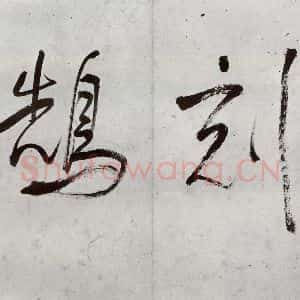 刻
鵠
Shufawang.CN